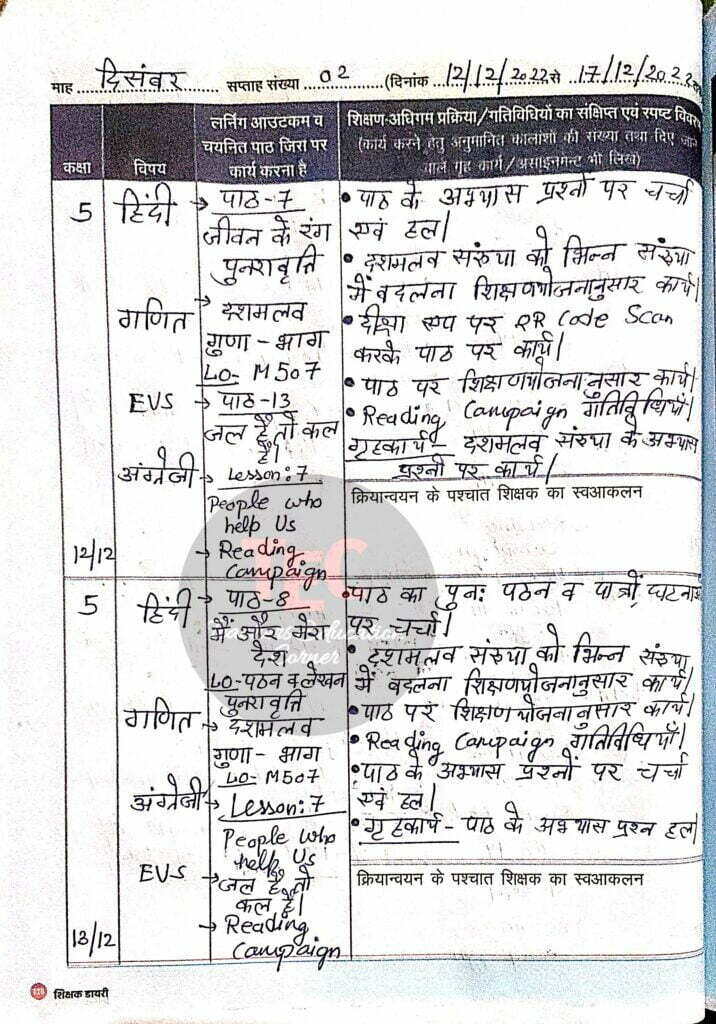 माह दिसंबर सप्ताह संख्या 02 (दिनांक 12/12/2022 से 17/12/2022
कक्षा
विषय
लर्निंग आउटकम व
चयनित पाठ जिस पर
कार्य करना है
शिक्षण-अधिगम प्रक्रिया/गतिविधियों का संक्षिप्त एवं स्पष्ट विवरण
(कार्य करने हेतु अनुमानित कालांशों की संख्या तथा दिए जाने
वाले गृह कार्य/असाइनमेन्ट भी लिखें)
5
हिंदी
→ पाठ-7
जीवन के रंग
पुनरावृत्ति
गणित
→ दशमलव
गुणा - भाग
LO- M507
EVS
→ पाठ-13
जल है तो कल
है।
अंग्रेजी
→ Lesson:7
People who
help Us
→ Reading
Campaign
12/12
• पाठ के अभ्यास प्रश्नों पर चर्चा
एवं हल।
• दशमलव संख्या को भिन्न संख्या
में बदलना शिक्षणयोजनानुसार कार्य।
• दीक्षा एप पर QR Code Scan
करके पाठ पर कार्य।
• पाठ पर शिक्षणयोजनानुसार कार्य।
• Reading Campaign गतिविधियाँ।
गृहकार्य - दशमलव संख्या के अभ्यास
प्रश्नों पर कार्य।
क्रियान्वयन के पश्चात शिक्षक का स्वआकलन
5
हिंदी
→ पाठ-8
मैं और मेरा
देश
LO-पठन व लेखन
पुनरावृत्ति
गणित
→ दशमलव
गुणा - भाग
LO- M507
अंग्रेजी
→ Lesson:7
People who
help Us
EVS
→ जल है तो
कल है।
→ Reading
Campaign
13/12
• पाठ का पुनः पठन व पात्रों, घटनाओं
पर चर्चा।
• दशमलव संख्या को भिन्न संख्या
में बदलना शिक्षणयोजनानुसार कार्य।
• पाठ पर शिक्षणयोजनानुसार कार्य।
• Reading Campaign गतिविधियाँ।
• पाठ के अभ्यास प्रश्नों पर चर्चा
एवं हल।
• गृहकार्य - पाठ के अभ्यास प्रश्न हल।
क्रियान्वयन के पश्चात शिक्षक का स्वआकलन
TEC
Education
Corner
शिक्षक डायरी